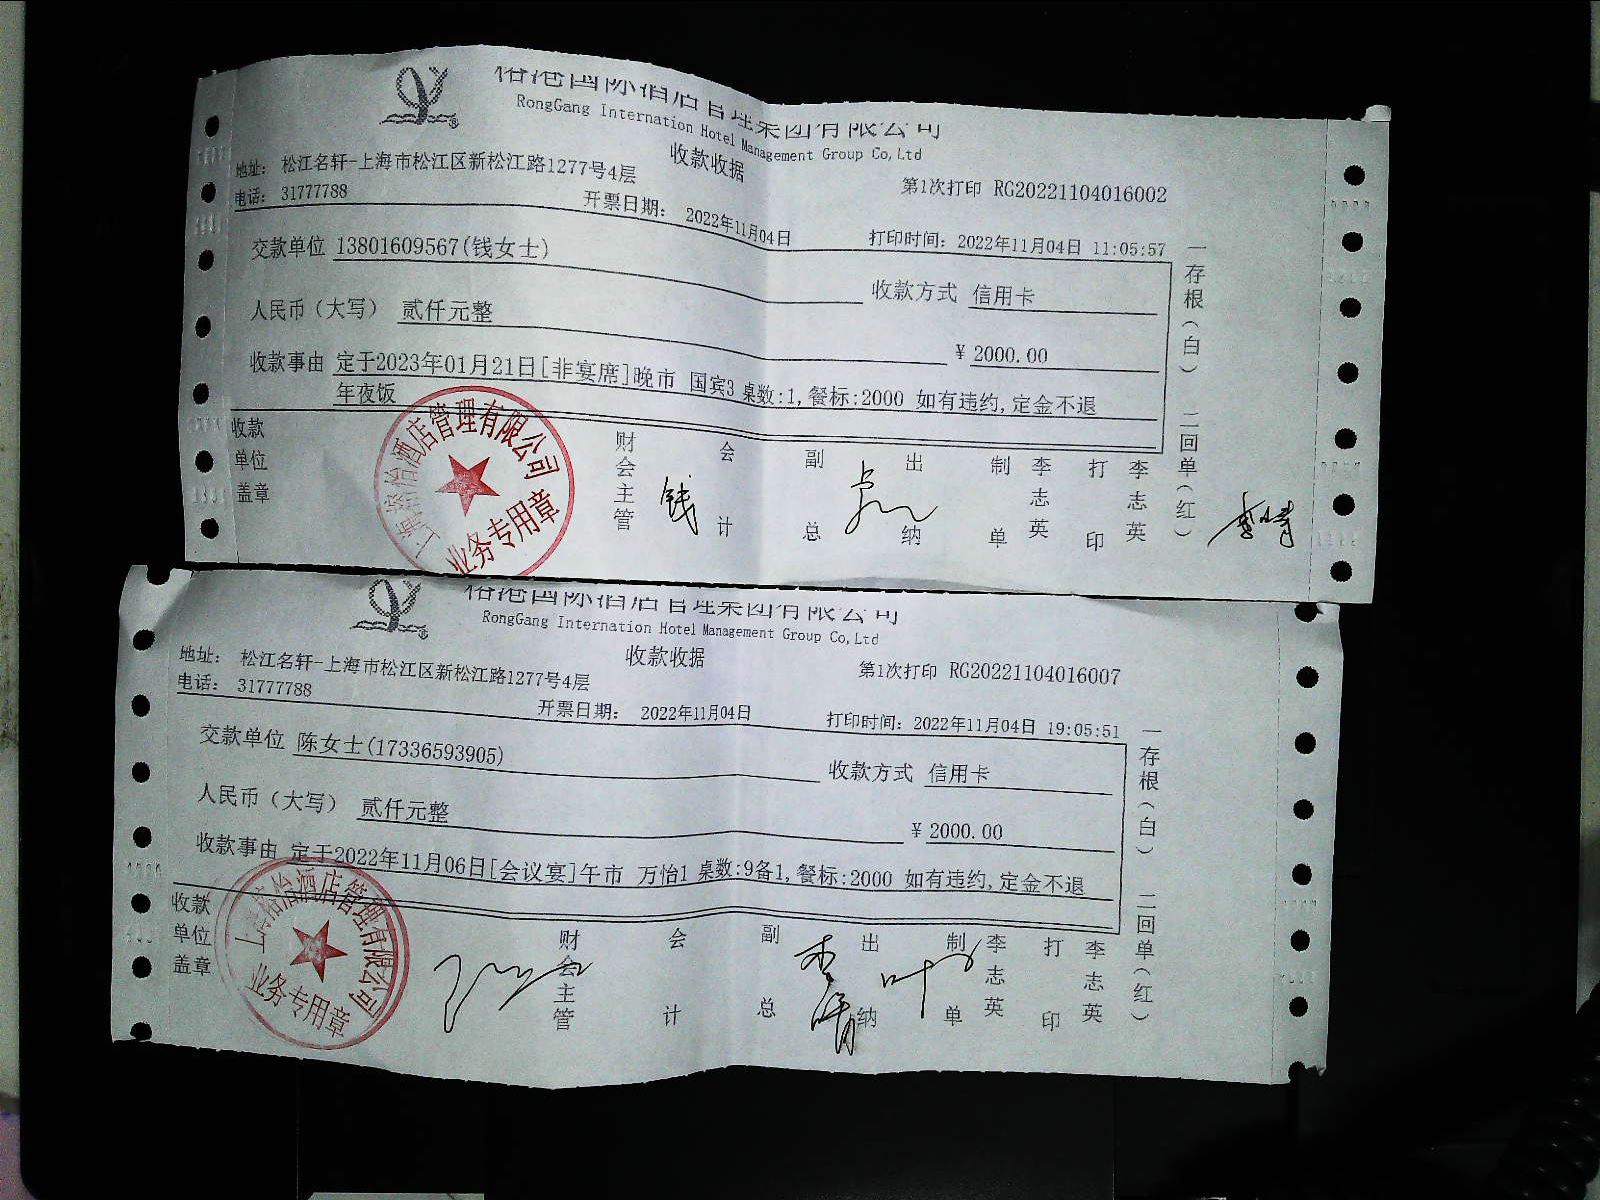 裕港国际酒店管理集团有限公司
RongGang Internation Hotel Management Group Co,Ltd
收款收据
地址: 松江名轩-上海市松江区新松江路1277号4层
第1次打印 RG20221104016002
电话: 31777788
开票日期: 2022年11月04日
打印时间: 2022年11月04日 11:05:57
交款单位 13801609567(钱女士)
收款方式 信用卡
人民币（大写） 贰仟元整
¥ 2000.00
收款事由 定于2023年01月21日[非宴席]晚市 国宾3 桌数:1,餐标:2000 如有违约,定金不退
年夜饭
收款单位盖章
财会主管 钱 会计 副总 出纳 制单 李志英 打印 李志英
一存根(白) 二回单(红)
酒店管理有限公司
业务专用章
裕港国际酒店管理集团有限公司
RongGang Internation Hotel Management Group Co,Ltd
收款收据
地址: 松江名轩-上海市松江区新松江路1277号4层
第1次打印 RG20221104016007
电话: 31777788
开票日期: 2022年11月04日
打印时间: 2022年11月04日 19:05:51
交款单位 陈女士(17336593905)
收款方式 信用卡
人民币（大写） 贰仟元整
¥ 2000.00
收款事由 定于2022年11月06日[会议宴]午市 万怡1 桌数:9备1,餐标:2000 如有违约,定金不退
收款单位盖章
财会主管 会计 副总 出纳 叶 制单 李志英 打印 李志英
一存根(白) 二回单(红)
酒店管理有限公司
业务专用章